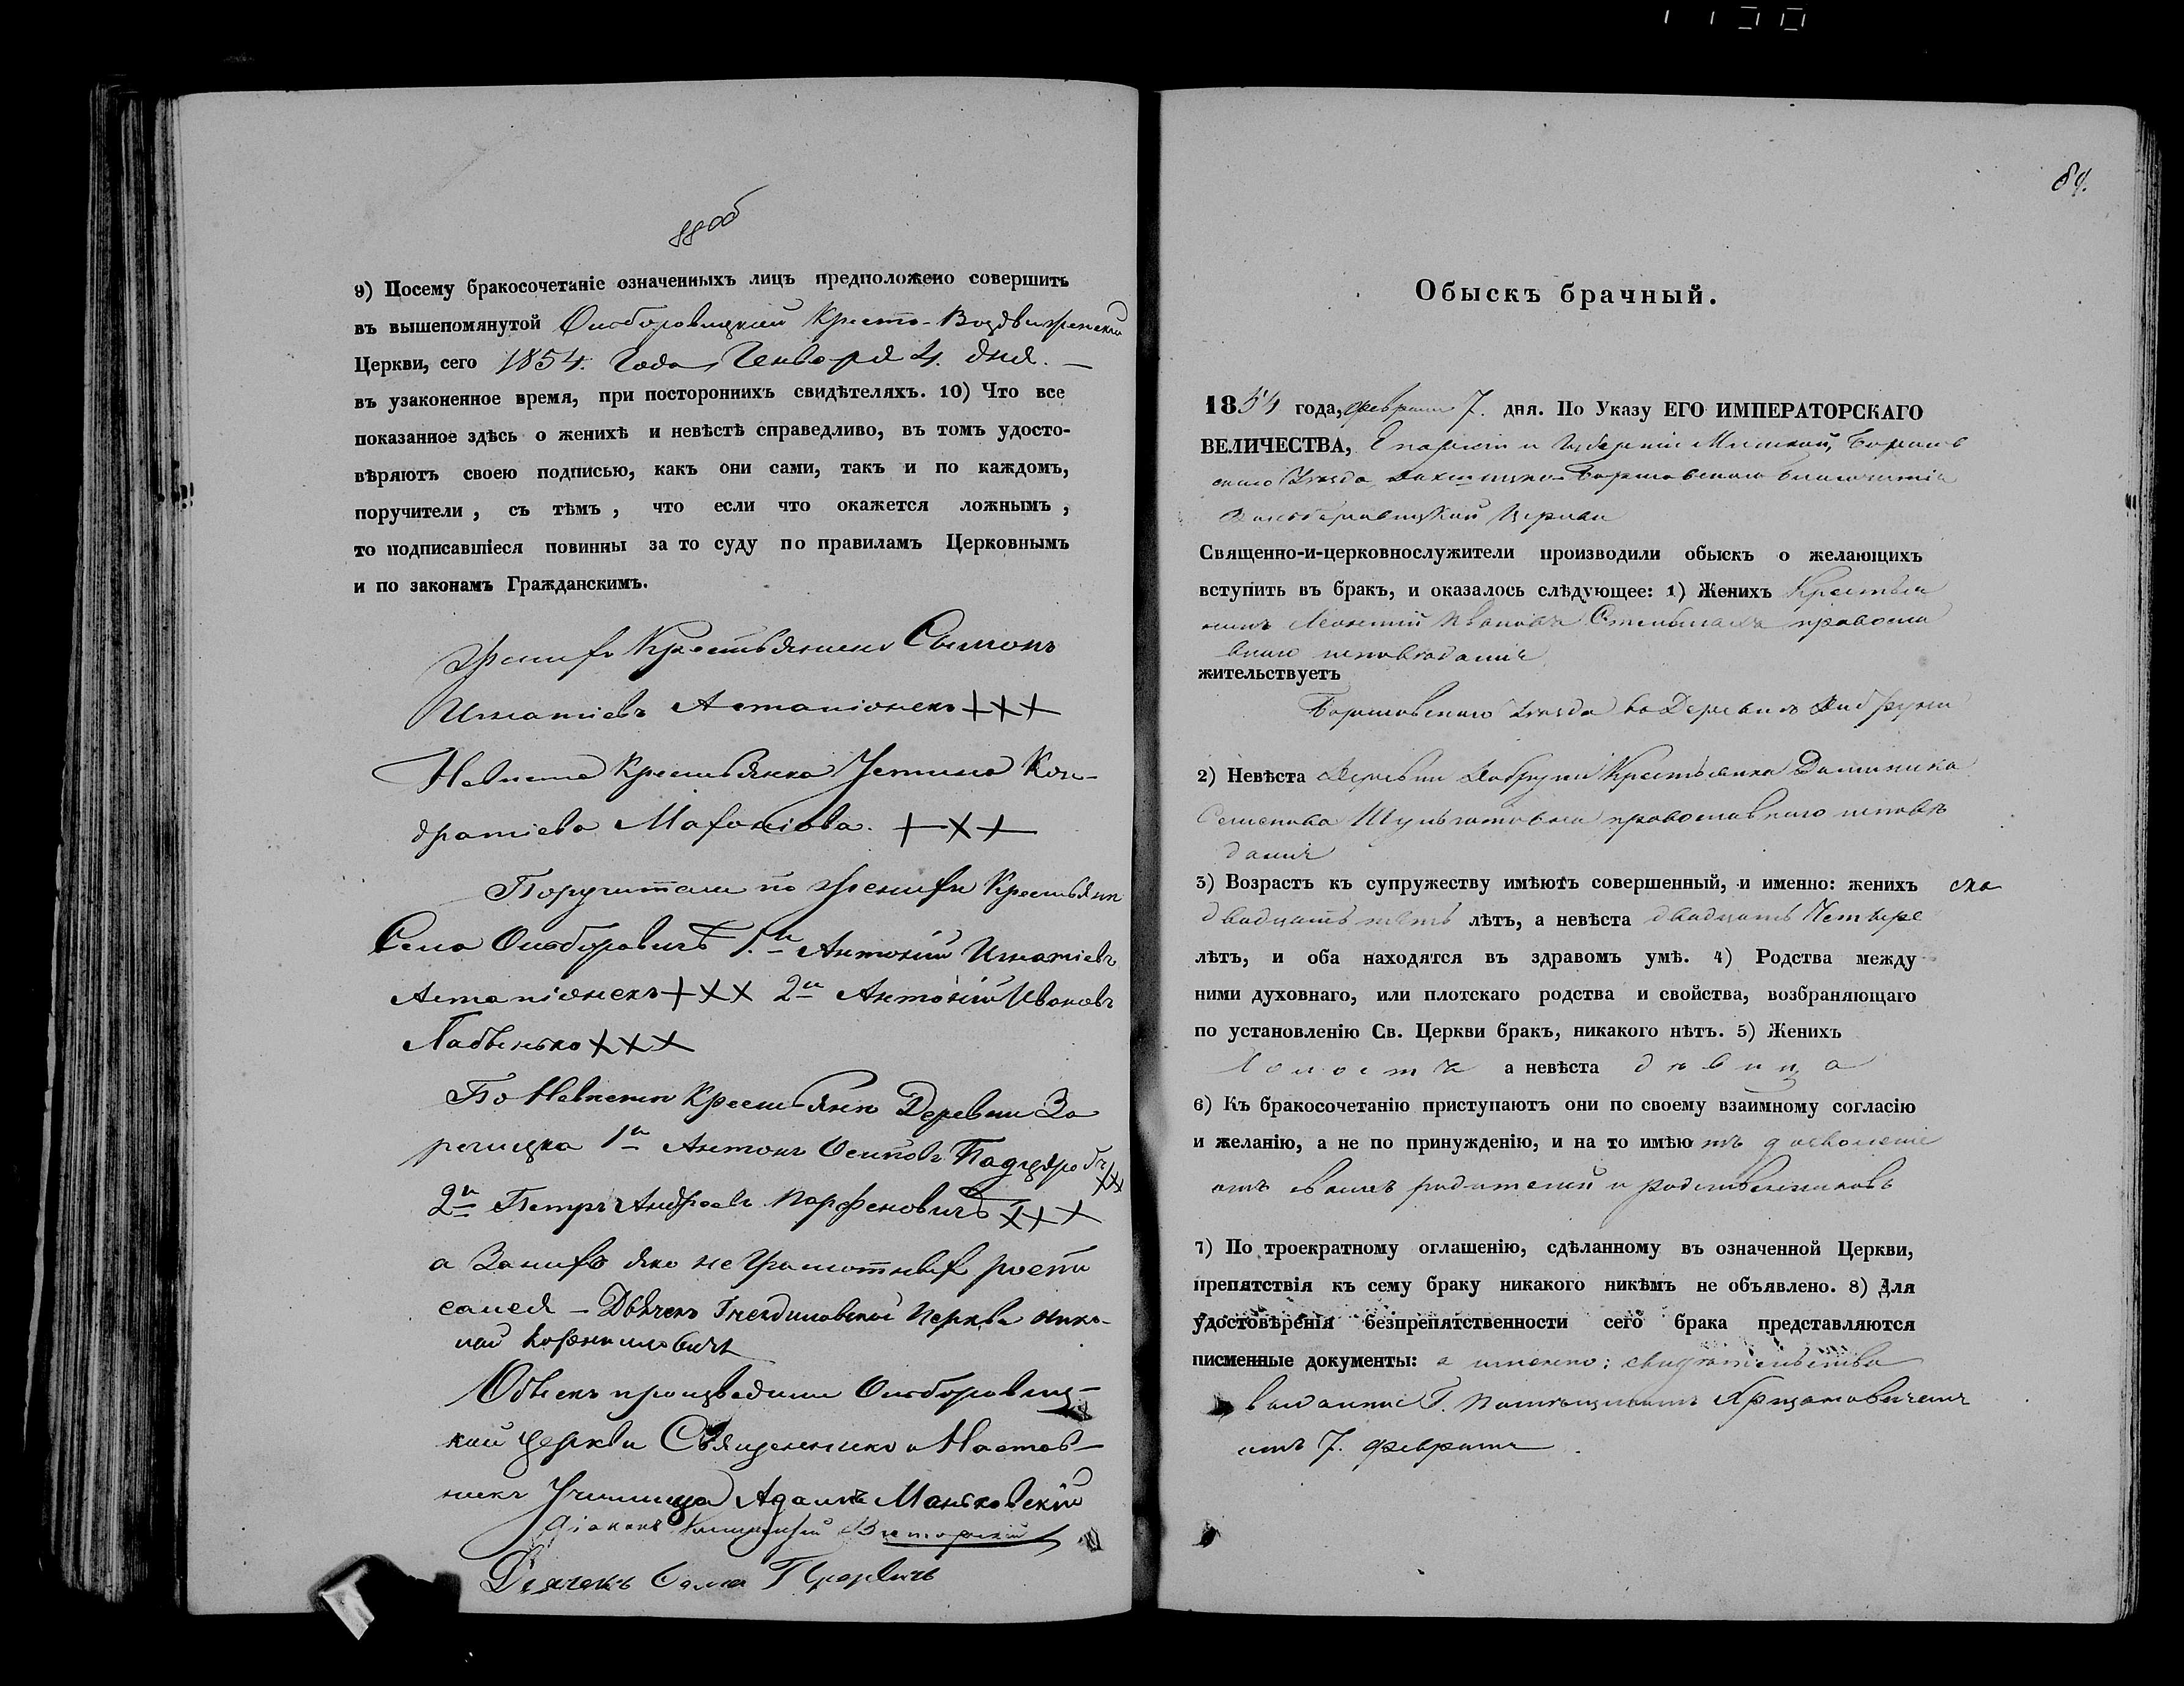 88 об
9) Посему бракосочетаніе означенныхъ лицъ предположено совершить
въ вышепомянутой Кресто-Воздвиженской
Церкви, сего 1854. Года, Генваря 4. дня.
въ узаконенное время, при постороннихъ свидѣтеляхъ. 10) Что все
показанное здѣсь о женихѣ и невѣстѣ справедливо, въ томъ удосто-
вѣряютъ своею подписью, какъ они сами, такъ и по каждомъ,
поручители, съ тѣмъ, что если что окажется ложнымъ,
то подписавшіеся повинны за то суду по правиламъ Церковнымъ
и по законамъ Гражданскимъ.
Женихъ Крестьянинъ Сымонъ
Игнатіевъ +++
Невѣста Крестьянка Устина Кон-
дратіева +++
Поручители по женихѣ Крестьяне
Села 1й Антоній Игнатіевъ
+++ 2й Антоній Ивановъ
+++
По Невѣстѣ Крестьяне Деревни За
речицка 1й Антонъ Осиповъ
+++
2й Петръ Андреевъ Парфеновичъ +++
а За нихъ яко не Грамотныхъ роспи
сался – Дьячекъ Церкви Нико-
лай
Обыскъ производили
кой Церкви Священникъ и Настав-
никъ Училища Адамъ Маньковскій
Діаконъ
Дьячекъ
89.
Обыскъ брачный.
1854 года, февраля 7. дня. По Указу ЕГО ИМПЕРАТОРСКАГО
ВЕЛИЧЕСТВА, Епархіи и Губерніи Минской, Борисов
скаго Уѣзда Борисовскаго благочинія
Церкви
Священно-и-церковнослужители производили обыскъ о желающихъ
вступить въ бракъ, и оказалось слѣдующее: 1) Женихъ Крестья
нинъ Леонтій Ивановъ правосла
внаго исповѣданія
жительствуетъ
Борисовскаго Уѣзда въ Деревнѣ
2) Невѣста Деревни Крестьянка Доминика
Семенова православнаго исповѣ
данія
3) Возрастъ къ супружеству имѣютъ совершенный, и именно: женихъ
двадцать пять лѣтъ, а невѣста двадцать Четыре
лѣтъ, и оба находятся въ здравомъ умѣ. 4) Родства между
ними духовнаго, или плотскаго родства и свойства, возбраняющаго
по установленію Св. Церкви бракъ, никакого нѣтъ. 5) Женихъ
холостъ а невѣста дѣвица
6) Къ бракосочетанію приступаютъ они по своему взаимному согласію
и желанію, а не по принужденію, и на то имѣютъ дозволеніе
отъ своихъ родителей и родственниковъ
7) По троекратному оглашенію, сдѣланному въ означенной Церкви,
препятствія къ сему браку никакого никѣмъ не объявлено. 8) Для
удостовѣренія безпрепятственности сего брака представляются
писменные документы: а именно: свидѣтельство
выданное Г. Помѣщикомъ
отъ 7. февраля.